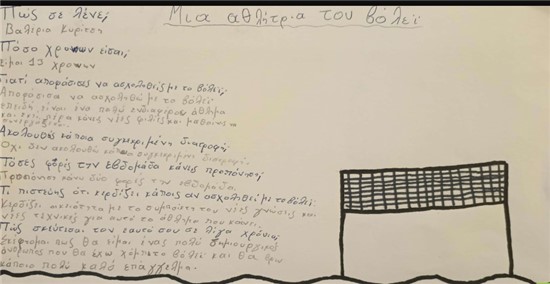 Μια αθλήτρια του βόλεϊ
Πώς σε λένε;
Βαλερια Κυρίτση
Πόσο χρονων είσαι;
Είμαι 13 χρονων
Γιατί αποφάσισες να ασχοληθείς με το βόλεϊ;
Αποφάσισα να ασχοληθώ με το βόλεϊ
επειδή είναι ένα πολύ ενδιαφέρον άθλημα
και εκεί πέρα κάνεις νέες φιλίες και μαθαίνεις να
συνεργάζεσαι.
Ακολουθείς κάποια συγκεκριμένη διατροφή;
Όχι δεν ακολουθώ κάποια συγκεκριμένη διατροφή.
Πόσες φορές την εβδομάδα κάνεις προπόνηση;
Προπόνηση κάνω δύο φορές την εβδομάδα.
Τι πιστεύεις ότι κερδίζει κάποιος αν ασχοληθεί με το βόλεϊ;
Κερδίζει με το νέες γνώσεις και
νέες τεχνικές για αυτό το άθλημα που κάνει.
Πώς σκέφτεσαι τον εαυτό σου σε λίγα χρόνια;
Σκέφτομαι πως θα είμαι ένας πολύ δημιουργικός
άνθρωπος που θα έχω χόμπι το βόλεϊ και θα
κάποιο πολύ καλό επάγγελμα.